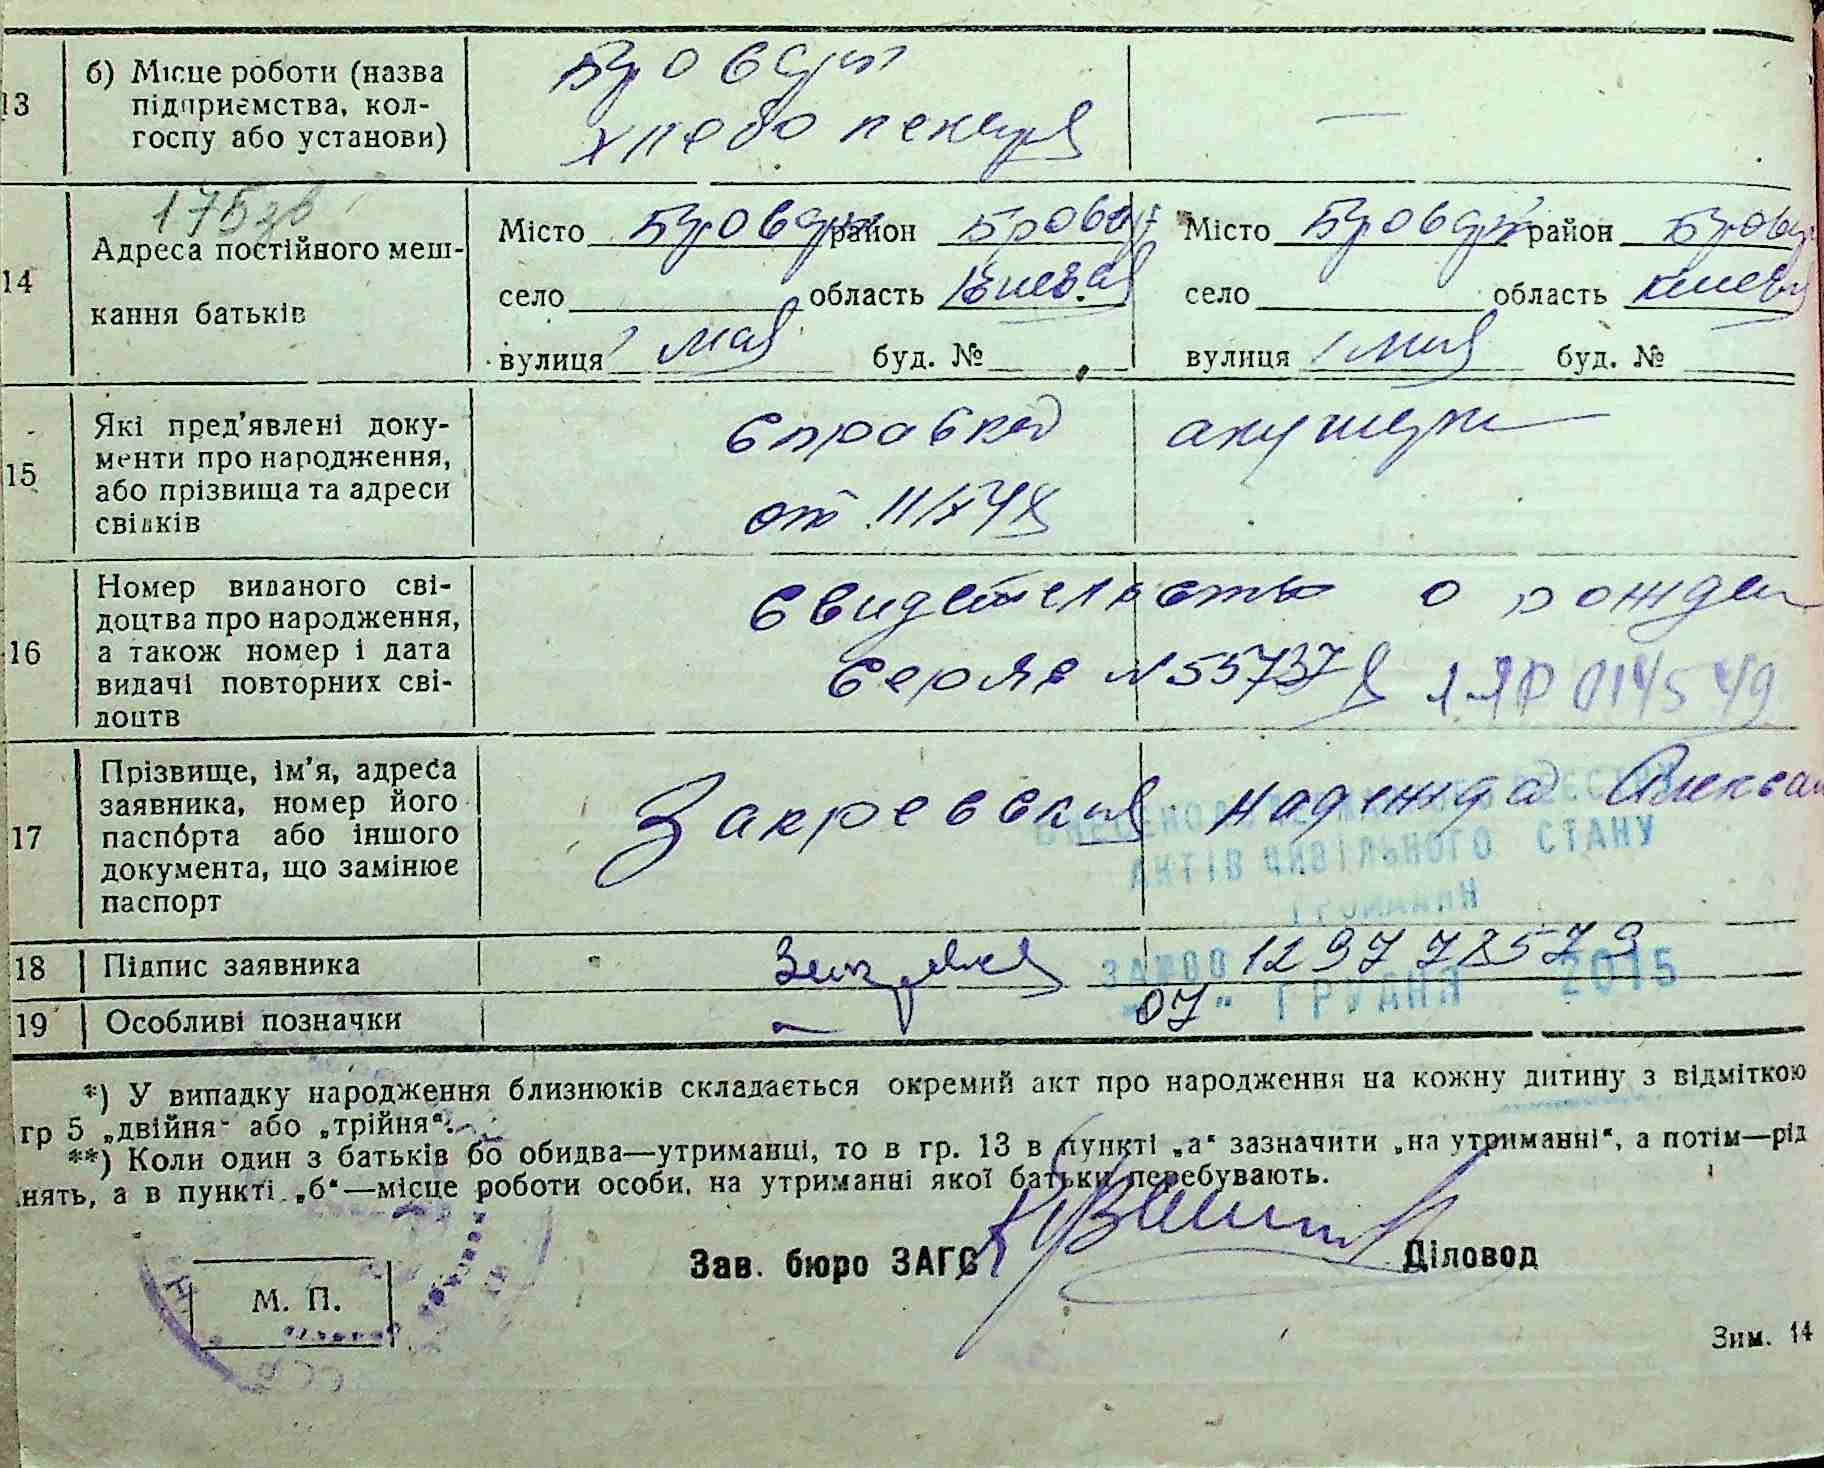 13 б) Місце роботи (назва підприємства, колгоспу або установи)
Бровары
хлебо пекаря
—
175зв
14 Адреса постійного мешкання батьків
Місто Бровары район Бровар
село область Киевская
вулиця 1 мая буд. №
Місто Бровары район Бровар
село область Киевская
вулиця 1 мая буд. №
15 Які пред'явлені документи про народження, або прізвища та адреси свідків
Справка акушерки
от 11/X 48
16 Номер виданого свідоцтва про народження, а також номер і дата видачі повторних свідоцтв
Свидетельство о рожден
Серия № 55737
17 Прізвище, ім'я, адреса заявника, номер його паспорта або іншого документа, що замінює паспорт
Закревская Надежда Алексан
АКТІВ ЦИВІЛЬНОГО СТАНУ
ГРОМАДЯН
18 Підпис заявника
19 Особливі позначки
07 " ГРУДНЯ 2015
*) У випадку народження близнюків складається окремий акт про народження на кожну дитину з відміткою
гр 5 „двійня" або „трійня".
**) Коли один з батьків бо обидва—утриманці, то в гр. 13 в пункті „а" зазначити „на утриманні", а потім—рід
нять, а в пункті „б"—місце роботи особи, на утриманні якої батьки перебувають.
Зав. бюро ЗАГС Діловод
М. П.
Зим. 14